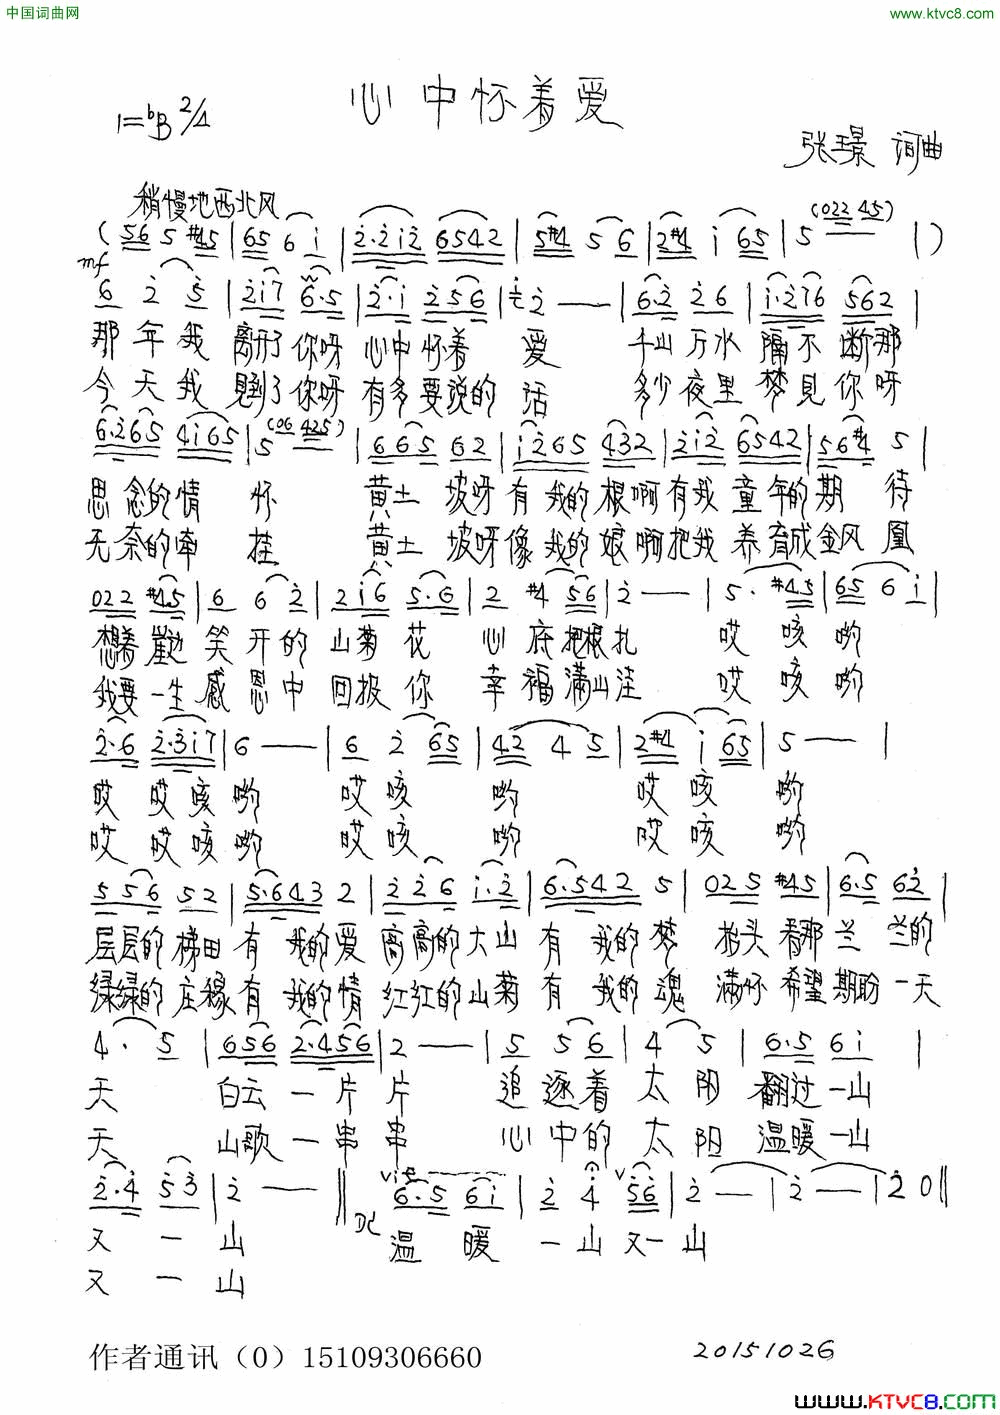 中国词曲网
www.ktvc8.com
心中怀着爱
1=bB 2/4
张璟 词曲
稍慢地西北风
(022 45)
( 56 5 #45 | 65 6 i | 2·2i2 6542 | 5#4 5 6 | 2#4 i 65 | 5 | )
mf
6 2 5 | 2i7 6·5 | 2·i 256 | i 2 — — | 6·2 26 | i·276 562 |
那年我 离开了你呀 心中怀着 爱 千山万水 隔不断那
今天我 見到了你呀 有多要说的 话 多少夜里 梦見你呀
6·265 4i65 | 5 (06 425) | 665 62 | i265 432 | 2i2 6542 | 56#4 5 |
思念的情 怀 黄土坡呀有我的根啊有我童年的期待
无奈的牵 挂 黄土坡呀像我的娘啊把我养育成金凤凰
022 #45 | 6 6 2 | 2i6 5·6 | 2 #4 56 | 2 — — | 5· #45 | 65 6 i |
想着 笑开的山菊花 心底把根扎 哎咳哟
我要一生感恩中回报你 幸福满山洼 哎咳哟
2·6 2·3i7 | 6 — — | 6 2 65 | 42 4 5 | 2#4 i 65 | 5 — — |
哎 哎咳哟 哎咳 哟 哎咳 哟
哎 哎咳哟 哎咳 哟 哎咳 哟
556 52 | 5·643 2 | 226 i·2 | 6·542 5 | 025 #45 | 6·5 62 |
层层的梯田有我的爱 高高的大山有我的梦 抬头看那兰兰的
绿绿的庄稼有我的情 红红的山菊有我的魂 满怀希望期盼一天
4· 5 | 656 2·456 | 2 — — | 5 5 6 | 4 5 | 6·5 6i |
天 白云一片片 追逐着太阳 翻过一山
天 山歌一串串 心中的太阳 温暖一山
2·4 53 | 2 — — ‖ 6·5 6i | 2 4 V 56 | 2 — | 2 — | 2 0 ‖
DC
又一山 温暖一山又一山
又一山
作者通讯（0）15109306660
20151026
www.KTVC8.com